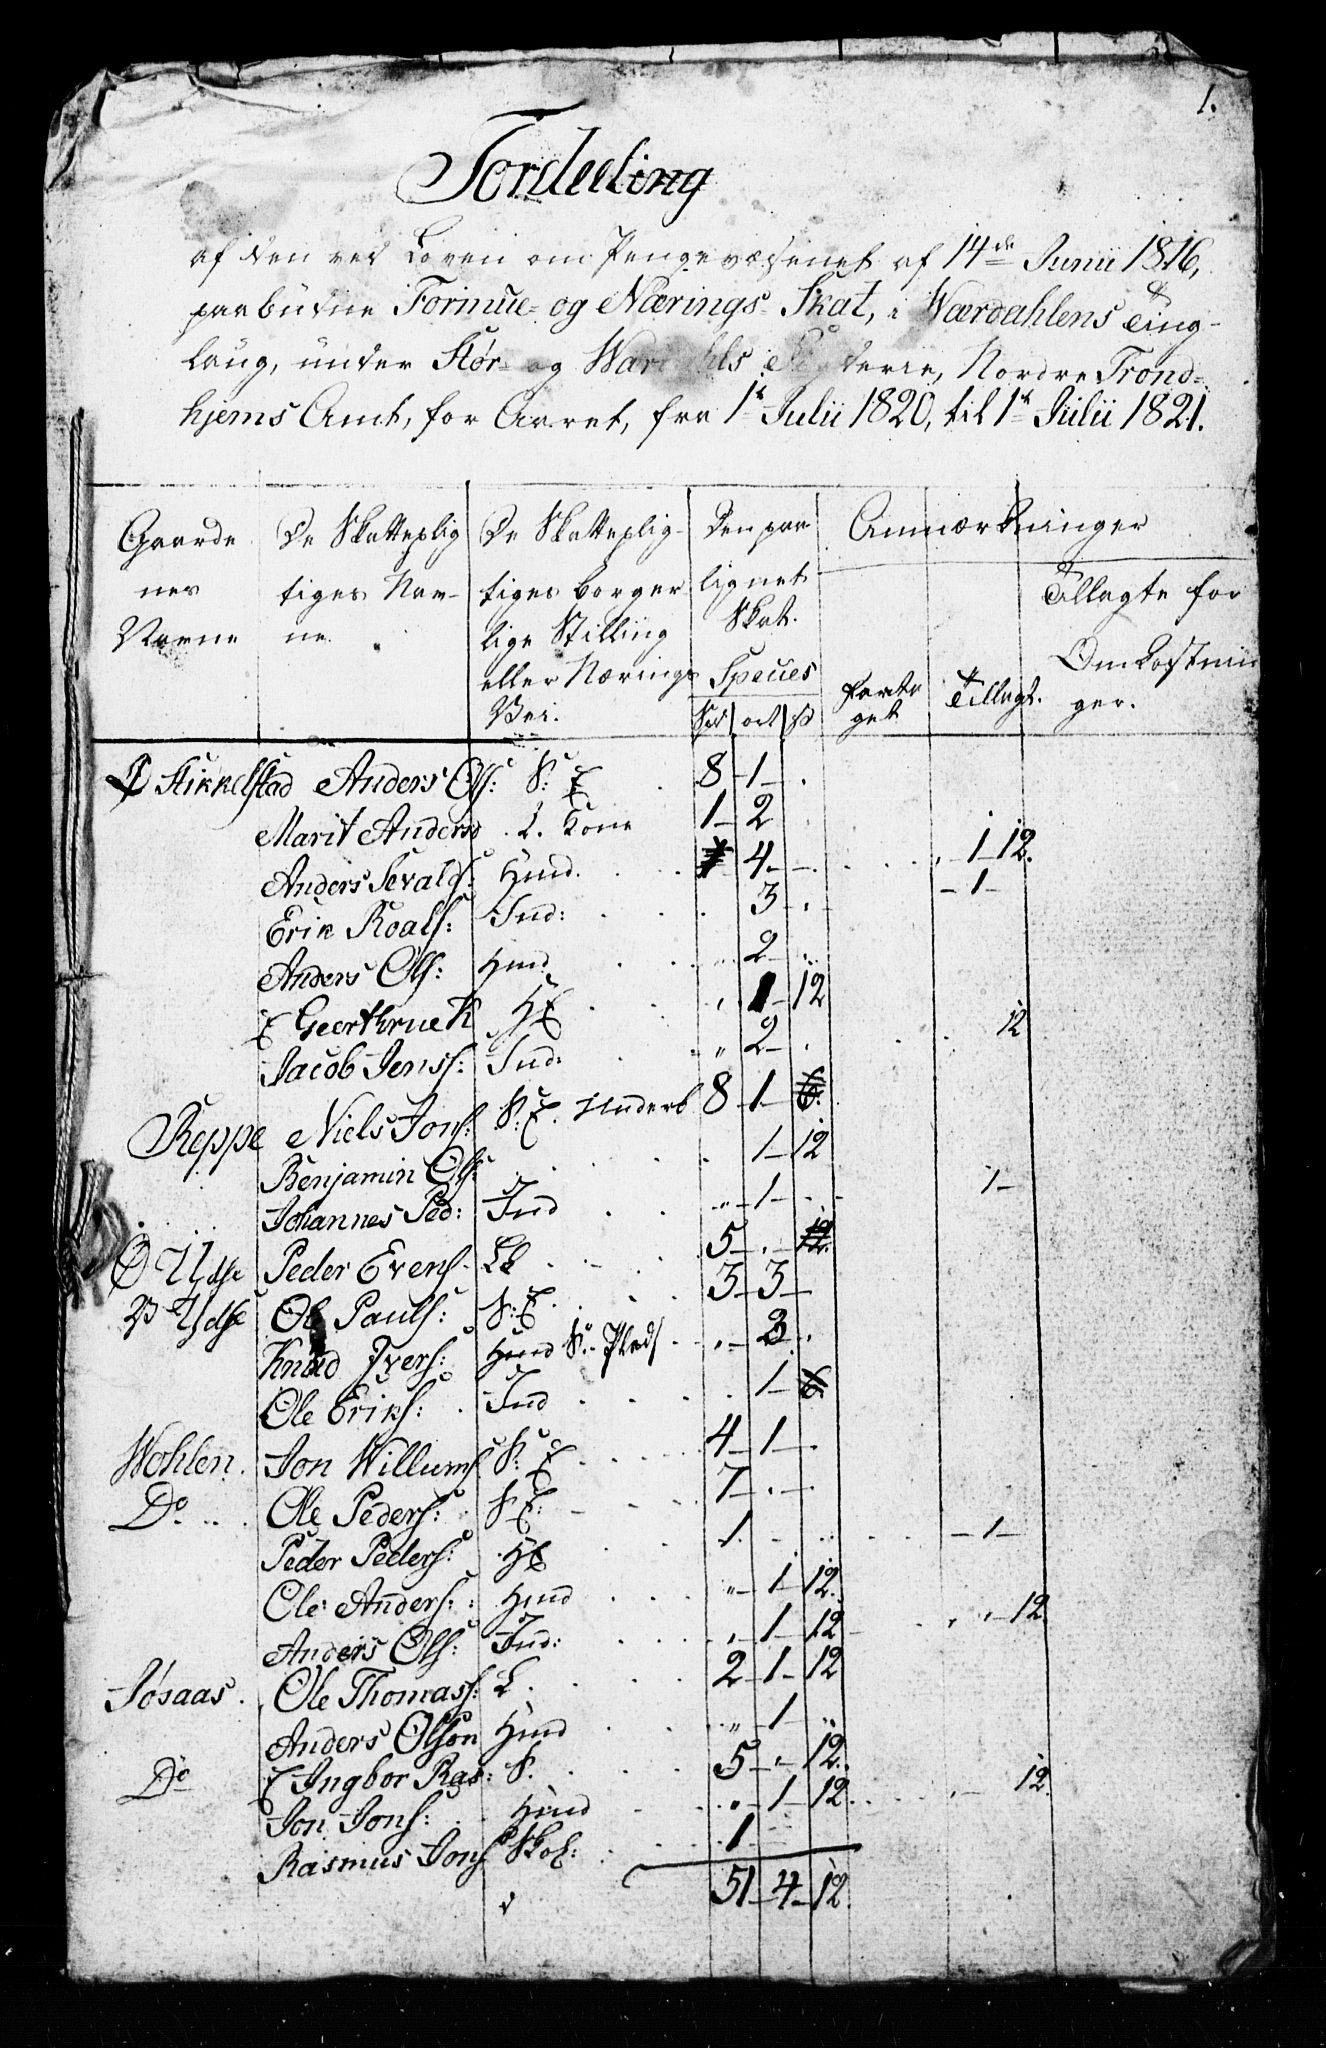 1.
Fordeeling
af den ved Loven om Pengevæsenet af 14de Junii 1816,
paabudne Formue- og Nærings-Skat, i Wærdahlens Ting-
laug, under Stør- og Wardahls Fogderie, Nordre Trond-
hjems Amt, for Aaret, fra 1te Julii 1820, til 1te Julii 1821.
Gaarde
nes
Navne
De Skatteplig
tiges Nav-
ne.
De Skatteplig-
tiges borger
lige Stilling
eller Nærings
Vei.
Den paa
lignet
Skat.
Species
Spd ort ß
Anmærkninger
Fradra
get
Tillagt.
Tillagte for
Omkostnin
ger.
Ø Stikkelstad Anders Ols: S: E 8 - 1 - .
Marit Anders L. Kone 1 - 2
Anders Sevalds: Hmd. 4 - 1 - 12.
Erik Roals: Ind: 3 - - 1 -
Anders Ols: Hmd 2 -
E Geerthrue K HE 1 - 12
Jacob Jens: Ind: " 2 - . 12
Reppe Niels Jons: S: E. Underb 8 - 1 -
Benjamin Ols: 1 - 12
Johannes Ped: Ind " - 1 - 1 -
Ø Ydse Peder Evens- LE 5 - . -
V Ydse Ole Pauls: S: E. 3 - 3 -
Knud Ivers: Hmd S: Plads
Ole Eriks: Ind 1 -
Wohlen. Jon Willums S: E 4 - 1 - .
Do Ole Peders: S E: 7 - . -
Peder Peders: HE 1 - 1 -
Ole Anders: Hmd " - 1 - 12.
Anders Ols: Ind: " - 1 - 12 " - 12.
Jøsaas. Ole Thomas: L 2 - 1 - 12
Anders Olson Hmd " - 1 "
Do E Ingbor Ras: S. 5 - " - 12.
Jon Jons: Hmd " - 1 - 12. 12.
Rasmus Jons Skol: 1
51 - 4 - 12.